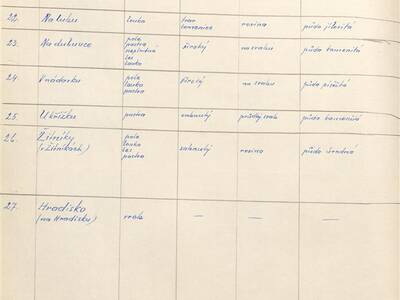 22. Na luhu louka tvar rovina půda jílovitá
23. Na dubovce pole široký na svahu půda kamenitá
pastva
neplodná
les
louka
24. V nádavku pole široký na svahu půda písčitá
louka
pastva
25. U křížku pastva půda kamenitá
26. Žitníky pole rovina půda
(v žitníkách) louka
les
pastva
27. Hradisko
(na Hradisku) — — —